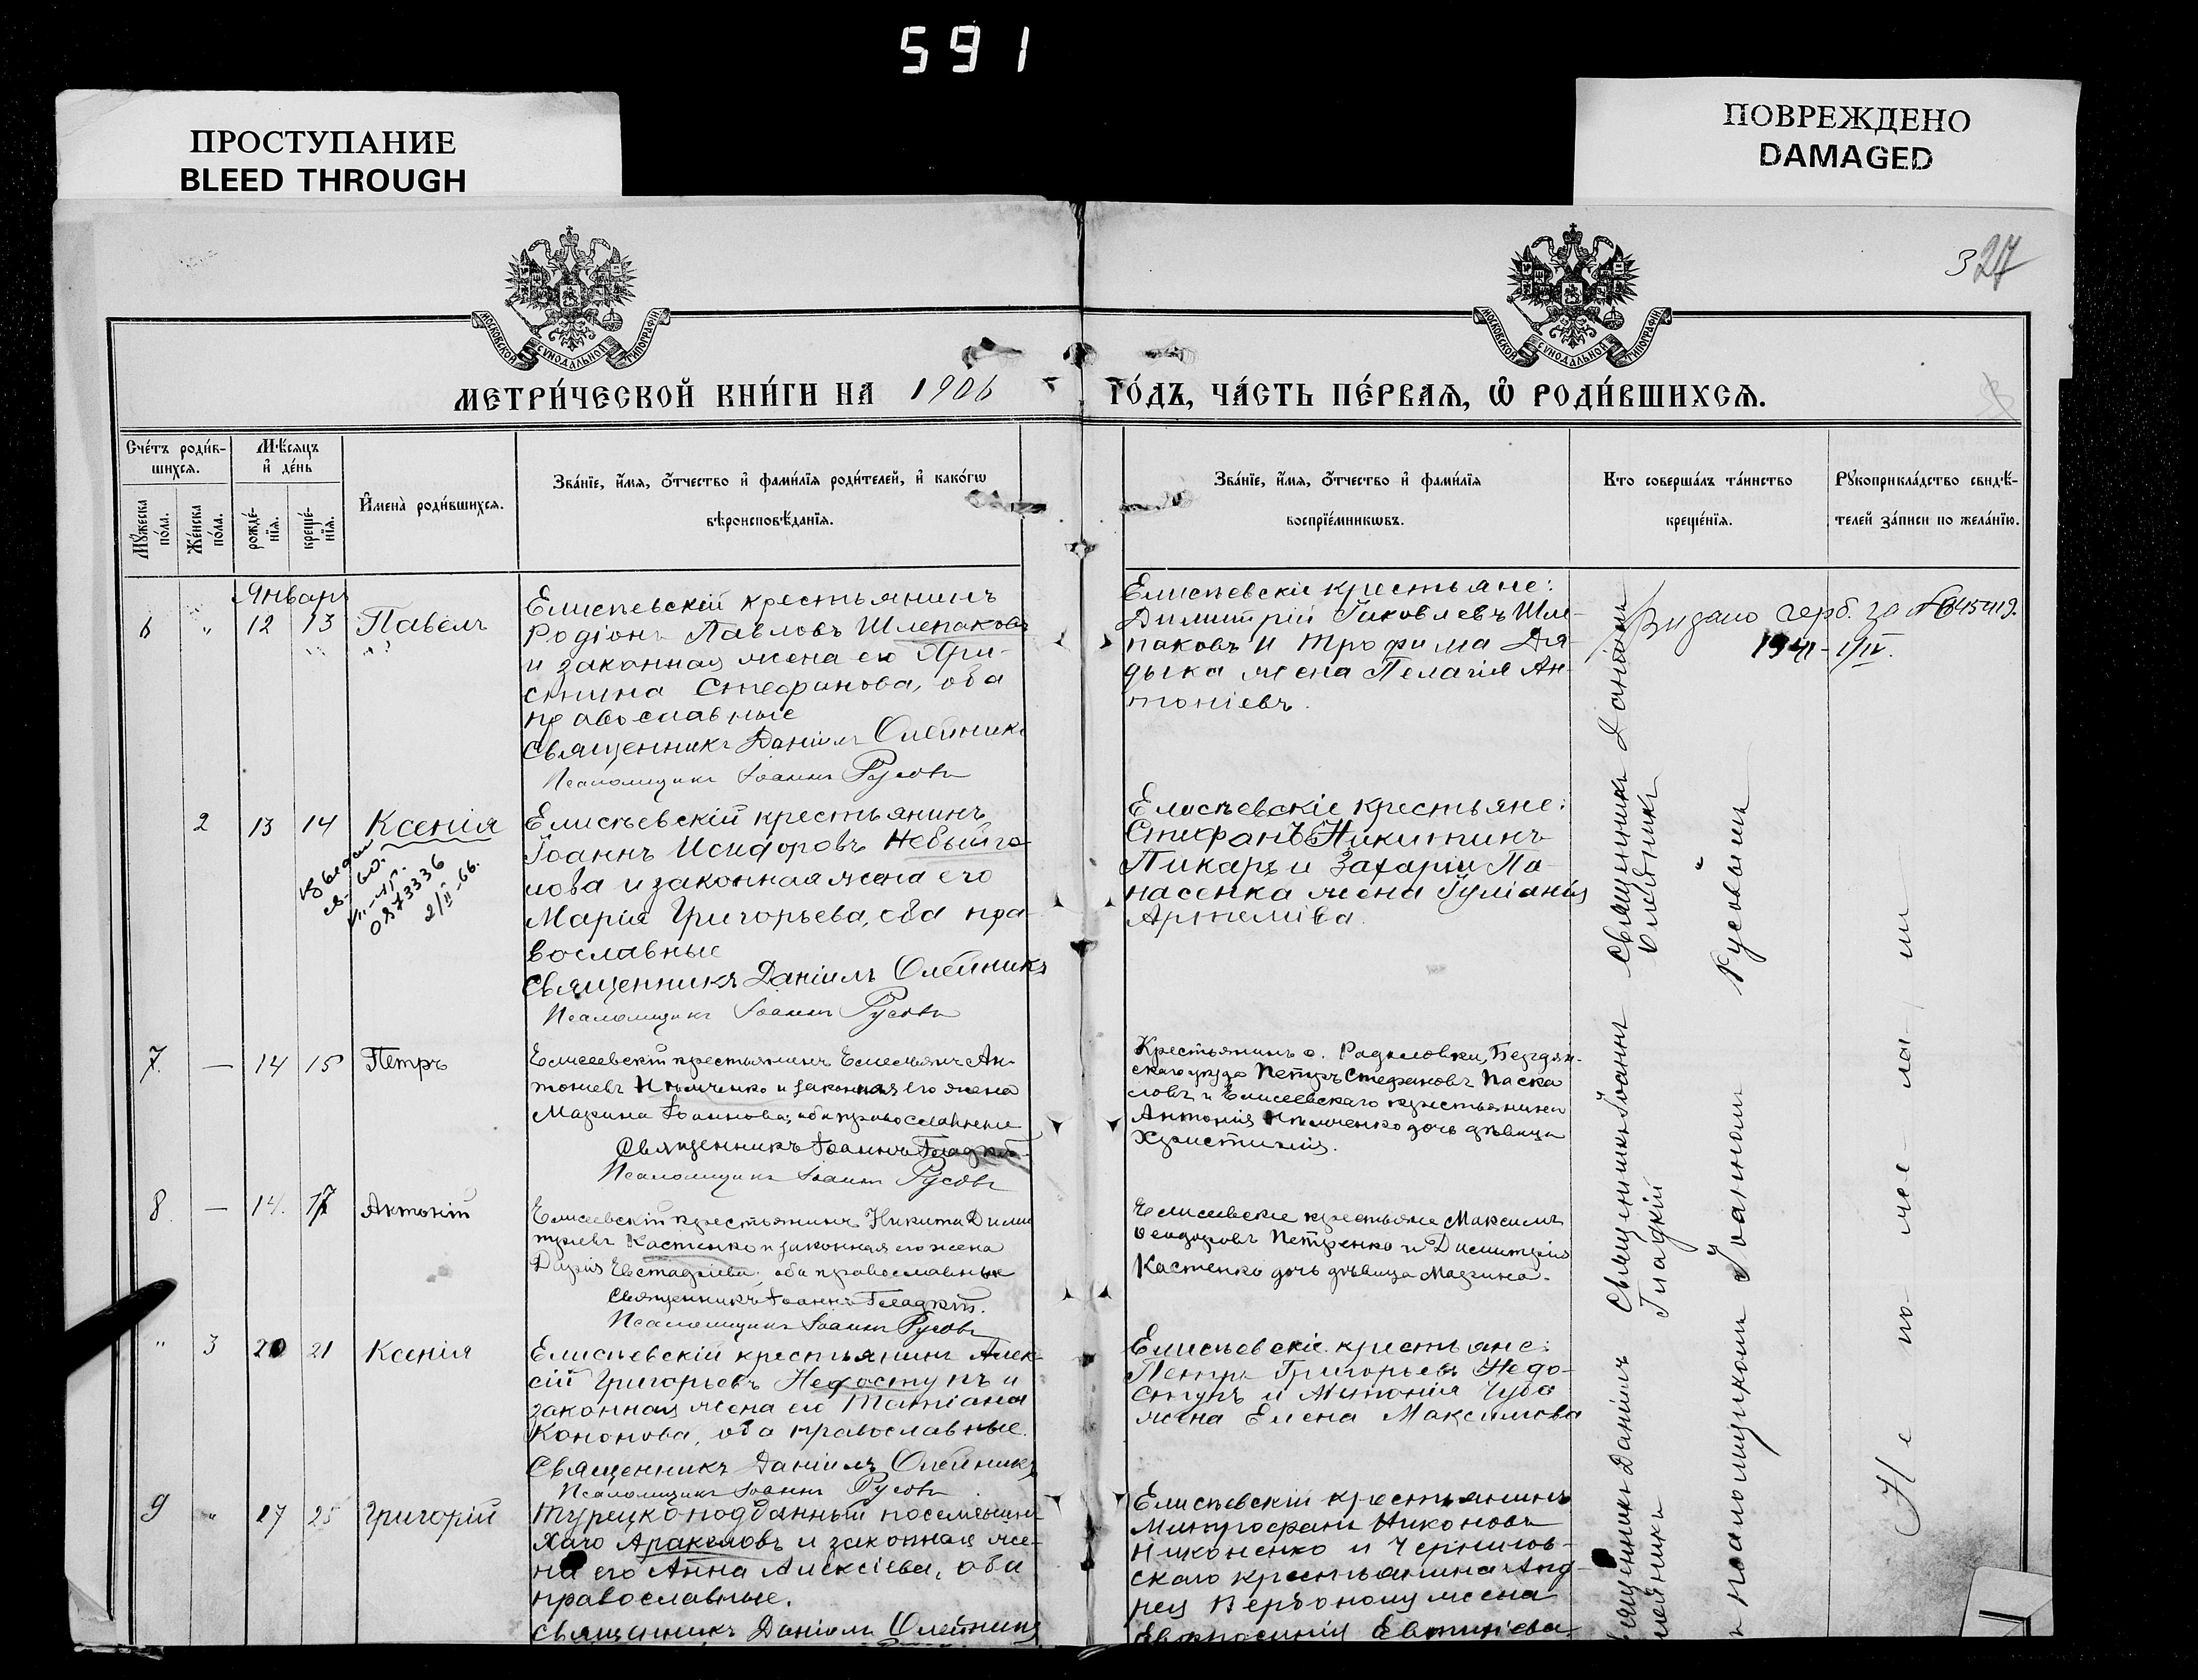 591
ПРОСТУПАНИЕ
BLEED THROUGH
ПОВРЕЖДЕНО
DAMAGED
327
МОСКОВСКОЙ СѴНОДАЛЬНОЙ ТИПОГРАФІИ
МОСКОВСКОЙ СѴНОДАЛЬНОЙ ТИПОГРАФІИ
МЕТРИ́ЧЕСКОЙ КНИ́ГИ НА 1906 ГО́ДЪ, ЧА́СТЬ ПЕ́РВАѦ, Ѽ РОДИ́ВШИХСѦ.
Сче́тъ роди́в-
шихсѧ.
Мѣ́сѧцъ
и҆ де́нь
Мꙋ́жеска по́ла.
Же́нска по́ла.
рожде́-
нїѧ.
креще́-
нїѧ.
И҆мена̀ роди́вшихсѧ.
Зва́нїе, и҆́мѧ, ѻ҆́тчество и҆ фами́лїѧ роди́телей, и҆ како́гѡ
вѣроисповѣ́данїѧ.
Зва́нїе, и҆́мѧ, ѻ҆́тчество и҆ фами́лїѧ
воспрїе́мникѡвъ.
Кто соверша́лъ та́инство
креще́нїѧ.
Рꙋкоприкла́дство свидѣ́-
телей за́писи по жела́нїю.
Январь
6 " 12 13 Павелъ
Елисѣевскій крестьянинъ
Родіонъ Павловъ Шлепаковъ
и законная жена его Хри-
стина Стефанова, оба
православные
Священникъ Даніилъ Олейникъ
Псаломщикъ Іоаннъ Русовъ
Елисѣевскіе крестьяне:
Димитрій Іаковлевъ Шле-
паковъ и Трофима Дя-
дыка жена Пелагія Ан-
тоніевъ.
1941-1/IV.
2 13 14 Ксенія
VII-ЯР.
0873336
2/II-66.
Елисѣевскій крестьянинъ
Іоаннъ Исидоровъ
и законная жена его
Марія Григорьева, оба пра-
вославные
Священникъ Даніилъ Олейникъ
Псаломщикъ Іоаннъ Русовъ
Елисѣевскіе крестьяне:
Стефанъ Никитинъ
Пикаръ и Захаріи Па-
насенка жена Іуліанія
Артеміева.
7. — 14 15 Петръ
Елисеевскій крестьянинъ Емельянъ Ан-
тоніевъ Ильченко и законная его жена
Марина Іоаннова, оба православные
Священникъ Іоаннъ Гладкій
Псаломщикъ Іоаннъ Русовъ
Крестьянинъ с. Радоловки, Бердян-
скаго уѣзда Петръ Стефановъ Паска
ловъ и Елисеевскаго крестьянина
Антонія Ильченко дочь дѣвица
Христинія.
8. — 14. 17 Антоній
Елисеевскій крестьянинъ Никита Дими
тріевъ Костенко и законная его жена
Дарія Евстафіева, оба православные
Священникъ Іоаннъ Гладкій.
Псаломщикъ Іоаннъ Русовъ
Елисеевскіе крестьяне Максимъ
Ѳеодоровъ Петренко и Димитрія
Костенко дочь дѣвица Марина.
" 3 20 21 Ксенія
Елисѣевскій крестьянинъ Алек-
сій Григорьевъ Недоступъ и
законная жена его Татіана
Кононова, оба православные.
Священникъ Даніилъ Олейникъ
Псаломщикъ Іоаннъ Русовъ
Елисѣевскіе крестьяне:
Петръ Григорьевъ Недо-
ступъ и Антонія Чуба
жена Елена Максимова
9 " 17 25 Григорій
Турецкоподданный поселянинъ
Хачо Аракеловъ и законная же-
на его Анна Алексіева, оба
православные.
Священникъ Даніилъ Олейникъ
Елисѣевскій крестьянинъ
Митрофанъ Никоновъ
Никоненко и Чернигов-
скаго крестьянина Анд-
рея жена
Евфросинія Евтихіева
Священникъ Даніилъ
Олейникъ
Священникъ Іоаннъ
Гладкій
Священникъ Даніилъ
Олейникъ
псаломщикомъ Іоанномъ Русовымъ
Не по же ла ли